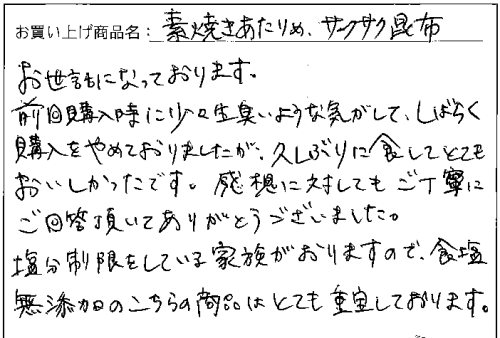 お買い上げ商品名：素焼きあたりめ、サクサク昆布
お世話になっております。
前回購入時に少々生臭いような気がして、しばらく
購入をやめておりましたが、久しぶりに食してとても
おいしかったです。感想に対してもご丁寧に
ご回答頂いてありがとうございました。
塩分制限をしている家族がおりますので、食塩
無添加のこちらの商品はとても重宝しております。